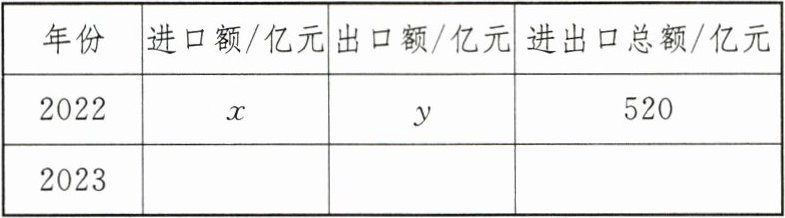 年份 进口额/亿元 出口额/亿元 进出口总额/亿元
2022 x y 520
2023